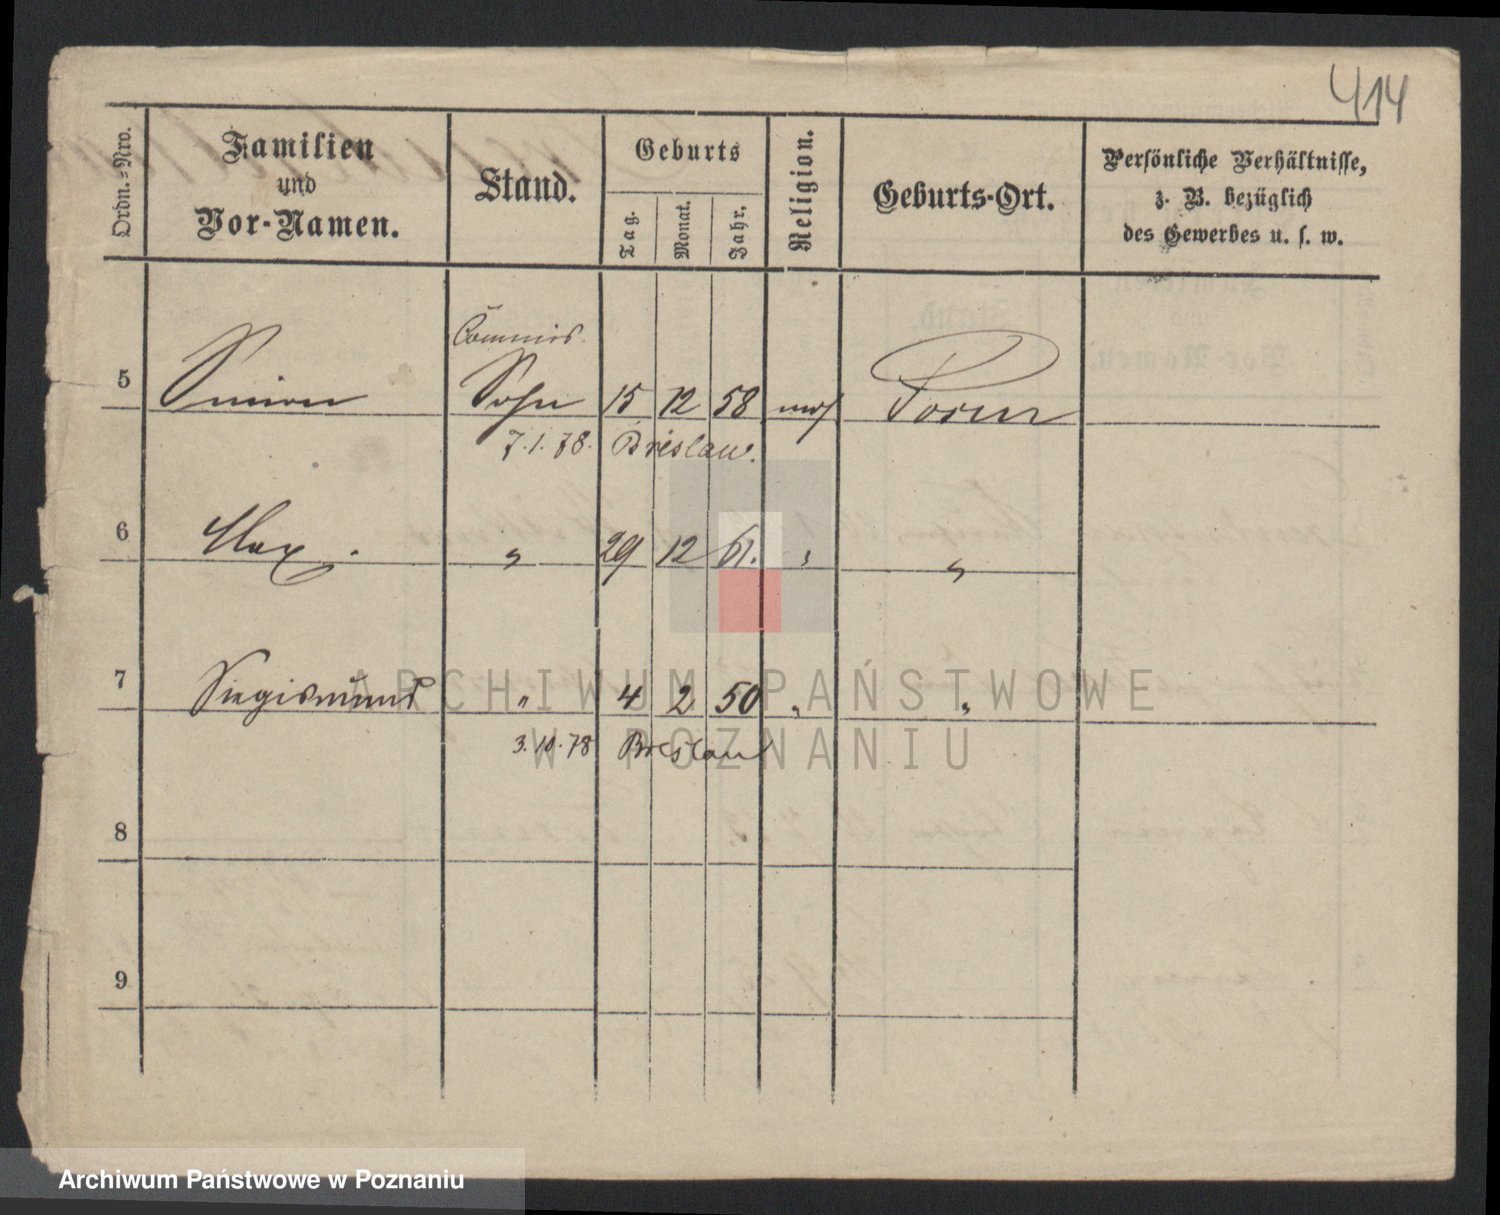 414
Ordn.-Nro.
Familien
und
Vor-Namen.
Stand.
Geburts
Tag.
Monat.
Jahr.
Religion.
Geburts-Ort.
Persönliche Verhältnisse,
z. B. bezüglich
des Gewerbes u. s. w.
Commis.
5 Simon Sohn 15 12 58 mos Posen
7.1.78. Breslau.
6 Max. " 29 12 61. " "
7 Siegismund " 4 2 50 " "
3.10.78 Breslau
8
9
ARCHIWUM PAŃSTWOWE
W POZNANIU
Archiwum Państwowe w Poznaniu